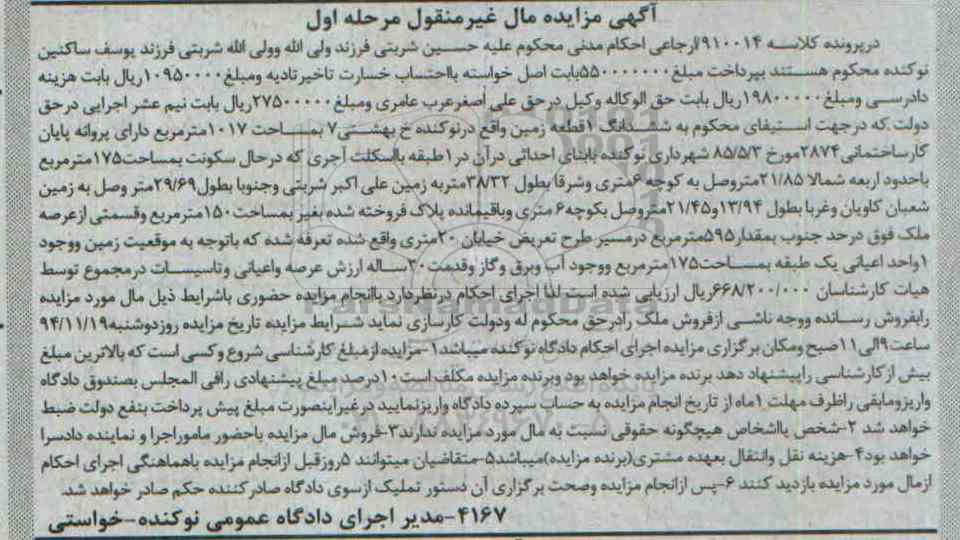 آگهی مزایده مال غیرمنقول مرحله اول
درپرونده کلاسه ۹۱۰۰۱۴/ارجاعی احکام مدنی محکوم علیه حسین شربتی فرزند ولی الله وولی الله شربتی فرزند یوسف ساکنین
نوکنده محکوم هستند بپرداخت مبلغ۵۵۰۰۰۰۰۰۰بابت اصل خواسته بااحتساب خسارت تاخیرتادیه ومبلغ۱۰۹۵۰۰۰۰ریال بابت هزینه
دادرسی ومبلغ۱۹۸۰۰۰۰۰ریال بابت حق الوکاله وکیل درحق علی اصغرعرب عامری ومبلغ۲۷۵۰۰۰۰۰ریال بابت نیم عشر اجرایی درحق
دولت.که درجهت استیفای محکوم به ششدانگ ۱قطعه زمین واقع درنوکنده خ بهشتی۷ بمساحت ۱۰۱۷مترمربع دارای پروانه پایان
کارساختمانی۲۸۷۴مورخ ۸۵/۵/۳ شهرداری نوکنده بابنای احداثی درآن در۱طبقه بااسکلت آجری که درحال سکونت بمساحت۱۷۵مترمربع
باحدود اربعه شمالا ۲۱/۸۵متروصل به کوچه۶متری وشرقا بطول ۳۸/۳۲متربه زمین علی اکبر شربتی وجنوبا بطول۲۹/۶۹متر وصل به زمین
شعبان کاویان وغربا بطول ۱۳/۹۴و۲۱/۴۵متروصل بکوچه۶ متری وباقیمانده پلاک فروخته شده بغیر بمساحت۱۵۰مترمربع وقسمتی ازعرصه
ملک فوق درحد جنوب بمقدار۵۹۵مترمربع درمسیر طرح تعریض خیابان ۲۰متری واقع شده تعرفه شده که باتوجه به موقعیت زمین ووجود
۱واحد اعیانی یک طبقه بمساحت۱۷۵مترمربع ووجود آب وبرق وگاز وقدمت۲۰ساله ارزش عرصه واعیانی وتاسیسات درمجموع توسط
هیات کارشناسان ۶۶۸/۲۰۰/۰۰۰ریال ارزیابی شده است لذا اجرای احکام درنظردارد باانجام مزایده حضوری باشرایط ذیل مال مورد مزایده
رابفروش رسانده ووجه ناشی ازفروش ملک رادرحق محکوم له ودولت کارسازی نماید شرایط مزایده تاریخ مزایده روزدوشنبه۹۴/۱۱/۱۹
ساعت۹الی۱۱صبح ومکان برگزاری مزایده اجرای احکام دادگاه نوکنده میباشد۱-مزایده ازمبلغ کارشناسی شروع وکسی است که بالاترین مبلغ
بیش ازکارشناسی راپیشنهاد دهد برنده مزایده خواهد بود وبرنده مزایده مکلف است ۱۰درصد مبلغ پیشنهادی رافی المجلس بصندوق دادگاه
واریزومابقی راظرف مهلت ۱ماه از تاریخ انجام مزایده به حساب سپرده دادگاه واریزنمایید درغیراینصورت مبلغ پیش پرداخت بنفع دولت ضبط
خواهد شد ۲-شخص یااشخاص هیچگونه حقوقی نسبت به مال مورد مزایده ندارند۳-فروش مال مزایده باحضور ماموراجرا و نماینده دادسرا
خواهد بود۴-هزینه نقل وانتقال بعهده مشتری(برنده مزایده)میباشد۵-متقاضیان میتوانند ۵روزقبل ازانجام مزایده باهماهنگی اجرای احکام
ازمال مورد مزایده بازدید کنند ۶-پس ازانجام مزایده وصحت برگزاری آن دستور تملیک ازسوی دادگاه صادرکننده حکم صادر خواهد شد.
۴۱۶۷-مدیر اجرای دادگاه عمومی نوکنده-خواستی
ParsNamadData